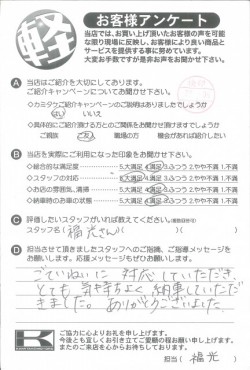 軽
お客様アンケート
当店では、お買い上げ頂いたお客様の声を可能
な限り現場に反映し、お客様により良い商品と
サービスを提供する事に努めています。
大変お手数ですが是非お声をお聞かせ下さい。
A 当店はご紹介を大切にしております。
ご紹介キャンペーンについてお聞き下さい。
◇カミタケご紹介キャンペーンのご説明はありましたでしょうか
はい いいえ
◇具体的にご紹介頂ける方との ご関係をお聞かせ頂けますでしょうか
ご親族 ご友人 職場の方 機会があれば紹介したい
B 当店を実際にご利用になった印象をお聞かせ下さい。
◇総合的な満足度 5.大満足 4.満足 3.ふつう 2.やや不満 1.不満
◇スタッフの対応 5.大満足 4.満足 3.ふつう 2.やや不満 1.不満
◇お店の雰囲気、清掃 5.大満足 4.満足 3.ふつう 2.やや不満 1.不満
◇納車時のお車の状態 5.大満足 4.満足 3.ふつう 2.やや不満 1.不満
C 評価したいスタッフがいれば教えてください。(複数回答可)
スタッフ名( 福光さん )( )( )
D 担当させて頂きましたスタッフへのご指摘、ご指導メッセージを
お願いします。応援メッセージもぜひお願いします。
ごていねいに 対応していただき、
とても 気持ちよく 納車していただ
きました。ありがとうございました。
K
ご協力に心よりお礼を申し上げます。
今後とも宜しくお引き立てご愛顧の程お願い申し上げます。
またのご来店を心からお待ちしております。
担当( 福光 )